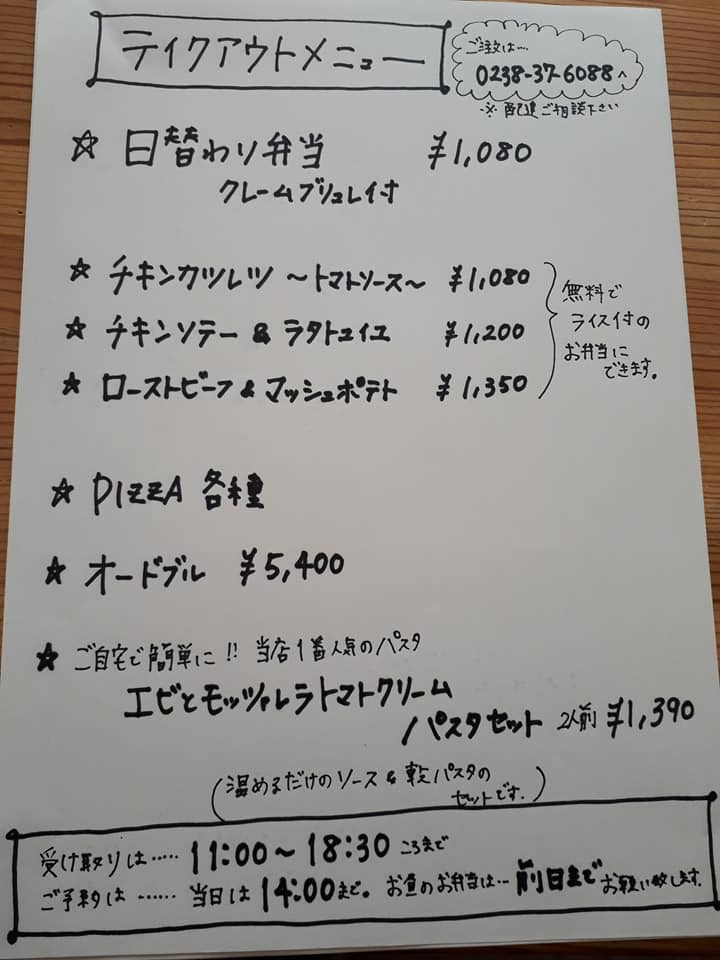 テイクアウトメニュー
ご注文は…
0238-37-6088へ
※配達ご相談下さい
☆ 日替わり弁当 ¥1,080
クレームブリュレイ付
☆ チキンカツレツ 〜トマトソース〜 ¥1,080
☆ チキンソテー & ラタトュイユ ¥1,200
☆ ローストビーフ & マッシュポテト ¥1,350
無料で
ライス付の
お弁当に
できます。
☆ PIZZA 各種
☆ オードブル ¥5,400
☆ ご自宅で簡単に!! 当店1番人気のパスタ
エビとモッツァレラトマトクリーム
パスタセット 2人前 ¥1,390
(温めるだけのソース & 乾パスタの
セットです.)
受け取りは…… 11:00〜18:30 ころまで
ご予約は …… 当日は14:00まで。 お昼のお弁当は… 前日まで お願い致します.